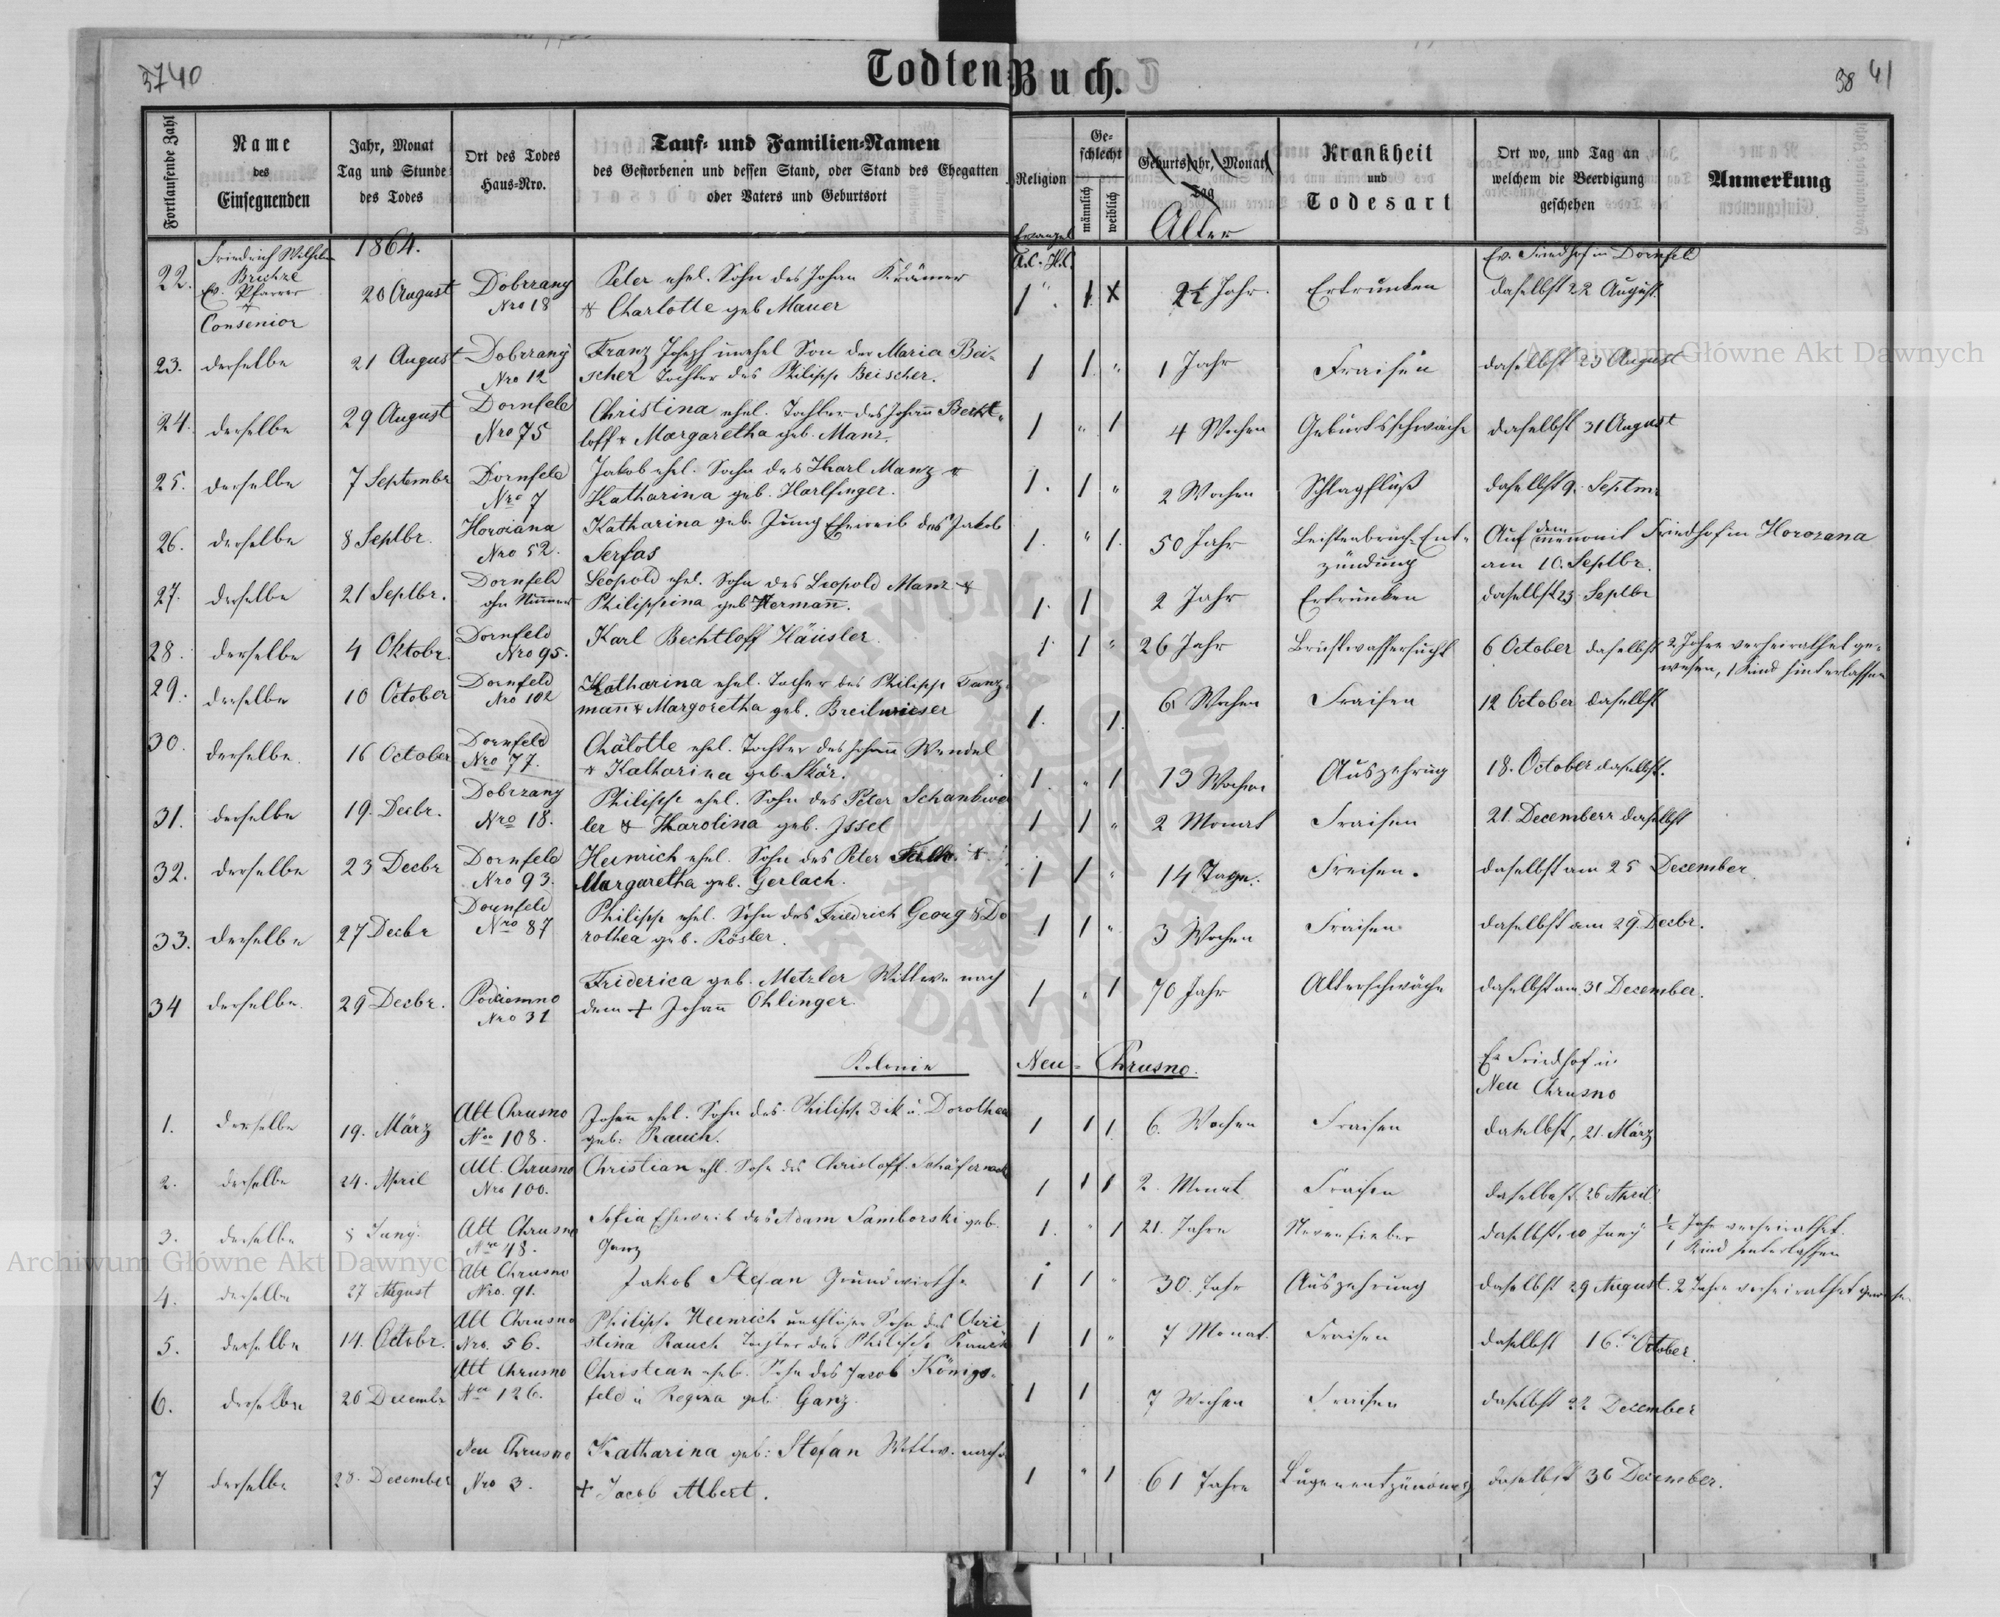 3740
Todten-Buch.
38 41
Fortlaufende Zahl
Name des Einsegnenden
Jahr, Monat Tag und Stunde des Todes
Ort des Todes Haus-Nro.
Tauf- und Familien-Namen
des Gestorbenen und dessen Stand, oder Stand des Ehegatten
oder Vaters und Geburtsort
Religion
Geschlecht
männlich
weiblich
Geburtsjahr, Monat, Tag
Alter
Krankheit und Todesart
Ort wo, und Tag an welchem die Beerdigung geschehen
Anmerkung
Evangel. A.C. H.C.
1864.
Ev. Friedhof in Dornfeld
22. Friedrich Wilhelm
Ev. Pfarrer
Consenior
20 August Dobrzany Nro 18
Peter ehel. Sohn des Johan Krämer
& Charlotte geb Mauer
1 1 Jahr Ertrunken daselbst 22 August
23. derselbe 21 August Dobrzany Nro 12
Franz Joseph unehel Son der Maria Bei-
scher Tochter des Philipp Beischer.
1 1 " 1 Jahr Fraisen daselbst 23 August
24. derselbe 29 August Dornfeld Nro 75
Christina ehel. Tochter des Johann Becht-
loff & Margaretha geb. Manz.
1 " 1 4 Wochen Geburtsschwäche daselbst 31 August
25. derselbe 7 September Dornfeld Nro 7
Jakob ehel. Sohn des Karl Manz &
Katharina geb. Harlfinger.
1. 1 " 2 Wochen Schlagfluß daselbst 9. Septm
26. derselbe 8 Septbr. Nro 52.
Katharina geb. Jung Eheweib des Jakob
Serfas
1. " 1. 50 Jahr Leistenbruch-Ent-
zündung
Auf dem menonit Friedhof in Horozana
am 10. Septbr.
27. derselbe 21 Septbr. Dornfeld ohn Nummer
Leopold ehel. Sohn des Leopold Manz &
Philippina geb Hermann.
1. 1 2 Jahr Ertrunken daselbst 23 Septbr
28. derselbe 4 Oktobr. Dornfeld Nro 95.
Karl Bechtloff Häusler.
1. 1 " 26 Jahr Brustwassersucht 6 October daselbst 2 Jahre verheirathet ge-
wesen, 1 Kind hinterlassen
29. derselbe 10 October Dornfeld Nro 102
Katharina ehel. Tocher des Philipp Tanz-
mann & Margaretha geb. Breitwieser
1. 1. 6 Wochen Fraisen 12 October daselbst
30. derselbe. 16 October Dornfeld Nro 77.
ehel. Tochter des Johann Wendel
& Katharina geb. Skär.
1. " 1 13 Wochen Auszehrung 18. October daselbst.
31. derselbe 19. Decbr. Dobrzany Nro 18.
Philipp ehel. Sohn des Peter Schankwei
ler & Karolina geb. Issel
1 1 " 2 Monat Fraisen 21. December daselbst
32. derselbe 23 Decbr Dornfeld Nro 93.
Heinrich ehel. Sohn des Peter &
Margaretha geb. Gerlach.
1 1 " 14 Tage. Freisen. daselbst am 25 December.
33. derselbe 27 Decbr Dornfeld Nro 87
Philipp ehel. Sohn des Friedrich Georg & Do
rothea geb. Rösler.
1 1 " 3 Wochen Fraisen daselbst am 29. Decbr.
34 derselbe. 29 Decbr. Podciemno Nro 31
Friderica geb. Metzler Wittwe nach
dem + Johann Ohlinger.
1 " 1 70 Jahr Alterschwäche daselbst am 31 December.
Kolonie Neu-Chrusno.
Ev Friedhof in
Neu Chrusno
1. derselbe 19. März Alt Chrusno Nro 108.
Johann ehel. Sohn des Philipp Dik u. Dorothea
geb: Rauch.
1 1 1 6. Wochen Fraisen daselbst, 21. März
2. derselbe 24. April Alt Chrusno Nro 100.
Christian ehl. Sohn des Christoff
1 1 1 2. Monat Fraisen daselbst 26 April
3. derselbe 8 Juny. Alt Chrusno Nro 48.
Sofia Eheweib des Adam Samborski geb.
Ganz
1. " 1 21. Jahre Nervenfieber daselbst, 10 Juny ½ Jahr verheirathet.
1 Kind hinterlassen
4. derselbe 27 August Alt Chrusno Nro. 91.
Jakob Stefan Grundwirth
1 1 " 30. Jahr Auszehrung daselbst 29 August. 2 Jahre verheirathet gewesen.
5. derselbe 14. Octobr. Alt Chrusno Nro. 56.
Philipp Heinrich unehlicher Sohn des Chri
stina Rauch Tochter des Philipp Rauch
1 1 " 7 Monat. Fraisen daselbst 16. October.
6. derselbe 20 Decembr Alt Chrusno Nro 126.
Christian ehel. Sohn des Jacob Königs-
feld u Regina geb: Ganz.
1 1 7 Wochen Fraisen daselbst 22 December
7 derselbe 28. December Neu Chrusno Nro 3.
Katharina geb: Stefan Wittw. nach
+ Jacob Albert.
1 " 1 61 Jahre Lugenentzündung daselbst 30 December.
Archiwum Główne Akt Dawnych
Archiwum Główne Akt Dawnych